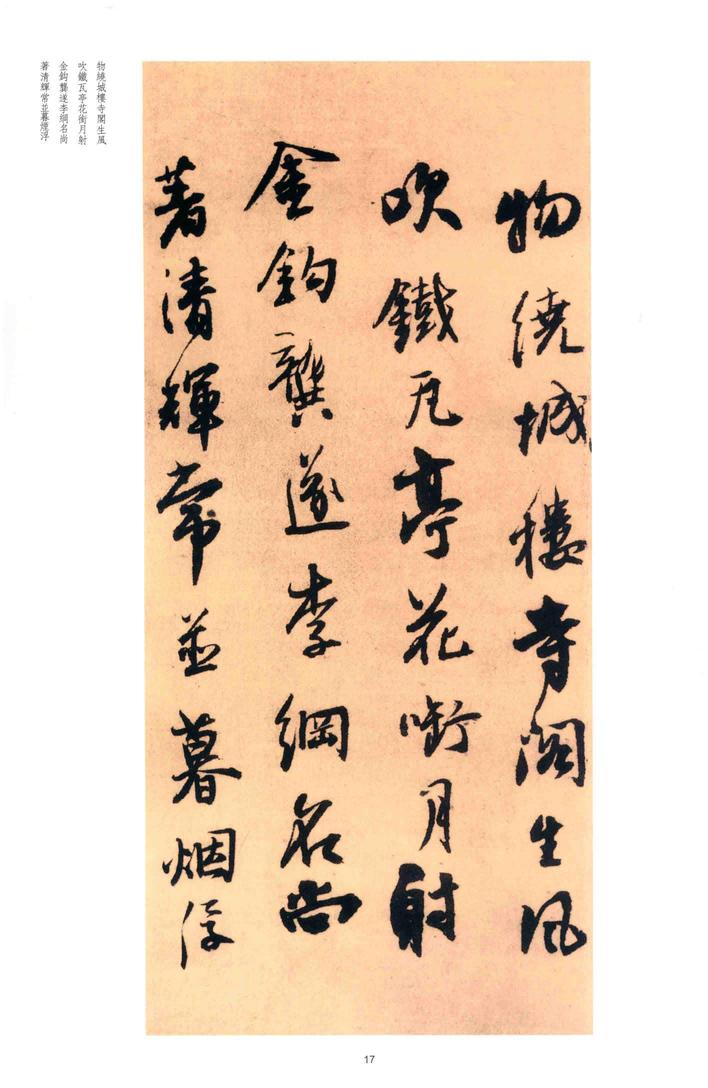 物繞城樓寺閣生風
吹鐵瓦亭花啣月射
金鈎龔遂李綱名尚
著清輝常並暮烟浮
物繞城樓寺閣生風
吹鐵瓦亭花銜月射
金鈎龔遂李綱名尚
著清輝常並暮煙浮
17